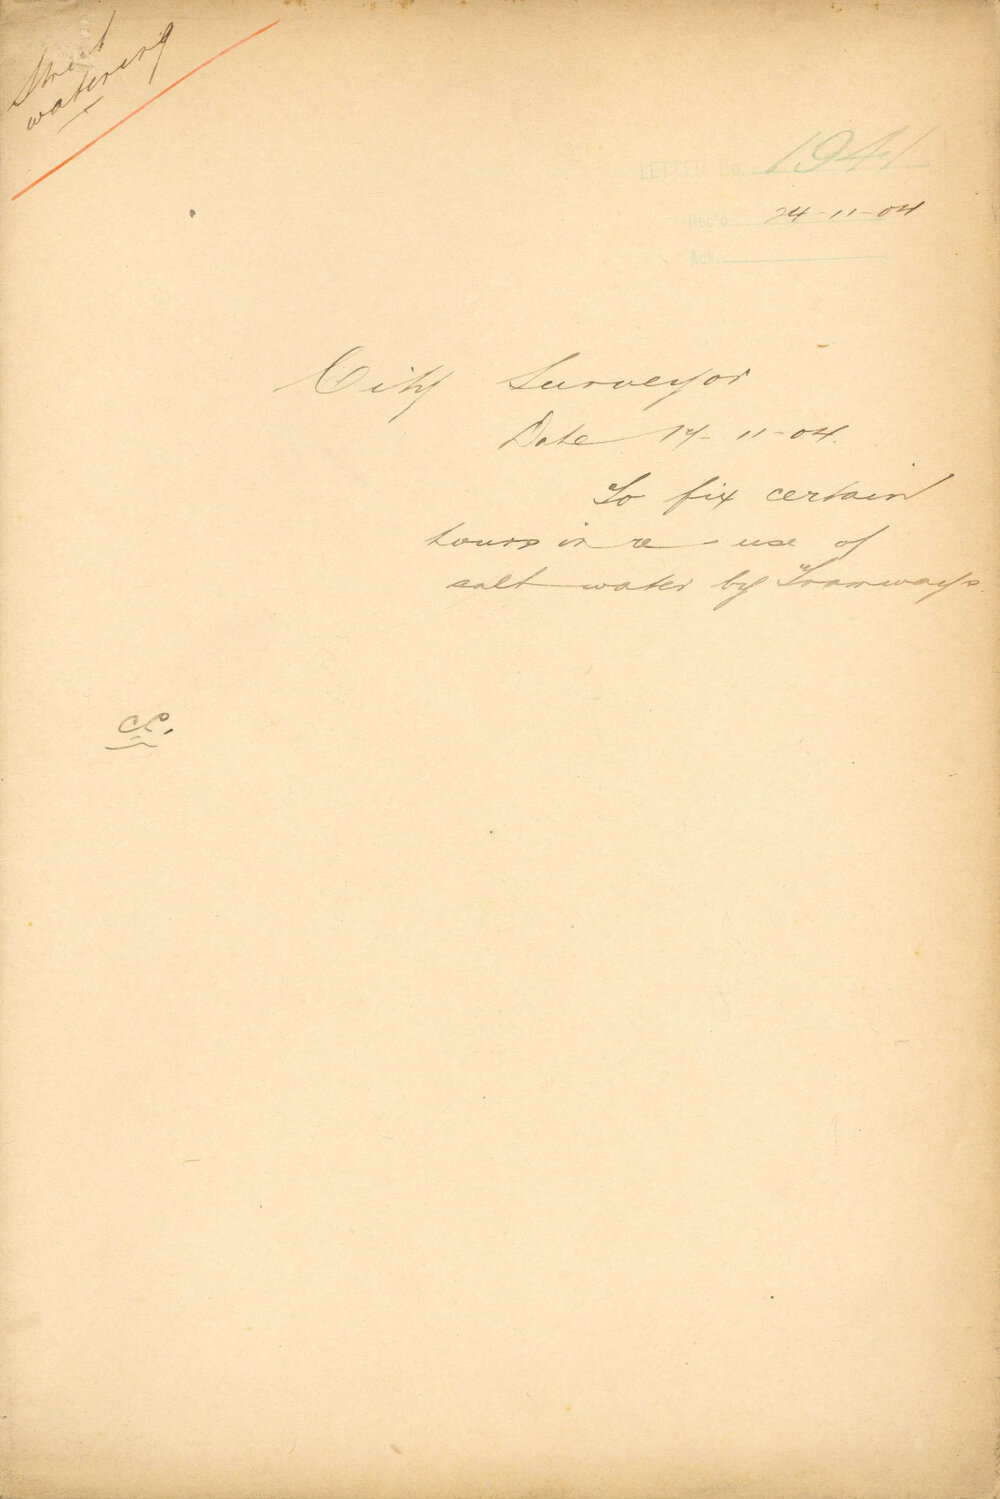 Street
watering
LETTER No. 1941
Rec'd. 24-11-04
Ack.
City Surveyor
Date 17-11-04.
To fix certain
hours in re use of
salt water by Tramways.